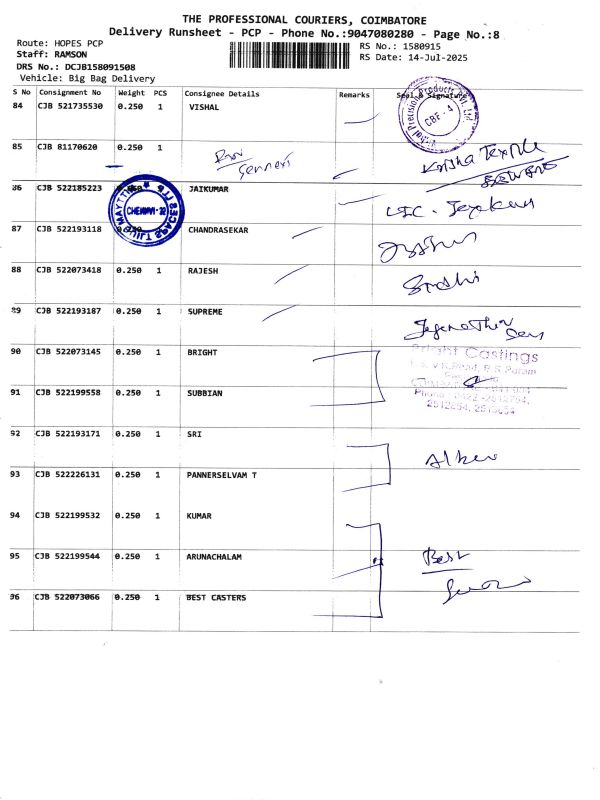 THE PROFESSIONAL COURIERS, COIMBATORE
Delivery Runsheet - PCP - Phone No.:9047080280 - Page No.:8
Route: HOPES PCP
RS No.: 1580915
Staff: RAMSON
RS Date: 14-Jul-2025
DRS No.: DCJB158091508
Vehicle: Big Bag Delivery
S No Consignment No Weight PCS Consignee Details Remarks Seal & Signature
84 CJB 521735530 0.250 1 VISHAL
CBE - 4
85 CJB 81170620 0.250 1
Textile
86 CJB 522185223 JAIKUMAR
CHENNAI - 32
LIC - Jeyakumar
87 CJB 522193118 0.250 1 CHANDRASEKAR
88 CJB 522073418 0.250 1 RAJESH
89 CJB 522193187 0.250 1 SUPREME
90 CJB 522073145 0.250 1 BRIGHT
Bright Castings
91 CJB 522199558 0.250 1 SUBBIAN
92 CJB 522193171 0.250 1 SRI
93 CJB 522226131 0.250 1 PANNERSELVAM T
94 CJB 522199532 0.250 1 KUMAR
95 CJB 522199544 0.250 1 ARUNACHALAM
Best
96 CJB 522073066 0.250 1 BEST CASTERS